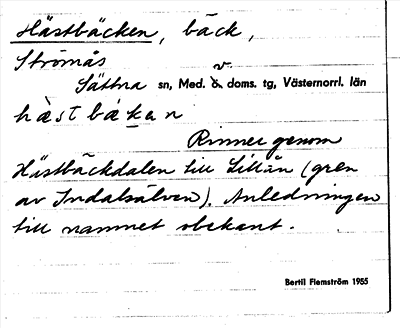 Hästbäcken, bäck,
Strömås
Sättna sn, Med. v. doms. tg, Västernorrl. län
hàstbákan
Rinner genom
Hästbäckdalen till Lillån (gren
av Indalsälven). Anledningen
till namnet obekant.
Bertil Flemström 1955